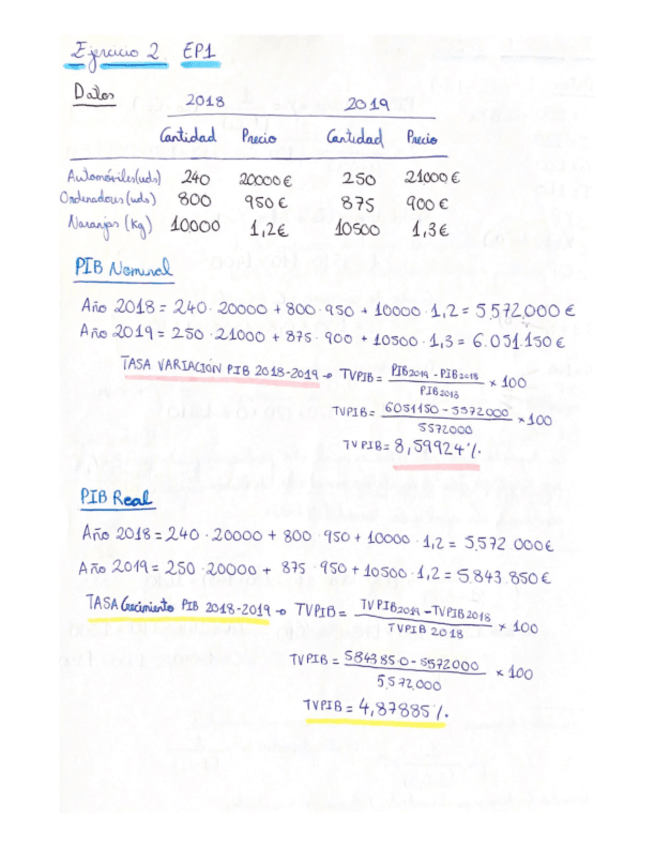 Ejercicio 2. EP1
Datos 2018 2019
Cantidad Precio Cantidad Precio
Automóviles(uds) 240 20000€ 250 21000€
Ordenadores(uds) 800 950€ 875 900€
Naranjas (Kg) 10000 1,2€ 10500 1,3€
PIB Nominal
Año 2018 = 240 · 20000 + 800 · 950 + 10000 · 1,2 = 5.572.000 €
Año 2019 = 250 · 21000 + 875 · 900 + 10500 · 1,3 = 6.051.150€
TASA VARIACIÓN PIB 2018-2019 → TVPIB = PIB2019 - PIB2018 / PIB2018 × 100
TVPIB = 6051150 - 5572000 / 5572000 × 100
TVPIB = 8,59924%
PIB Real
Año 2018 = 240 · 20000 + 800 · 950 + 10000 · 1,2 = 5.572 000€
Año 2019 = 250 · 20000 + 875 · 950 + 10500 · 1,2 = 5.843.850€
TASA Crecimiento PIB 2018-2019 → TVPIB = TVPIB2019 - TVPIB2018 / TVPIB 2018 × 100
TVPIB = 5843850 - 5572000 / 5.572.000 × 100
TVPIB = 4,87885%